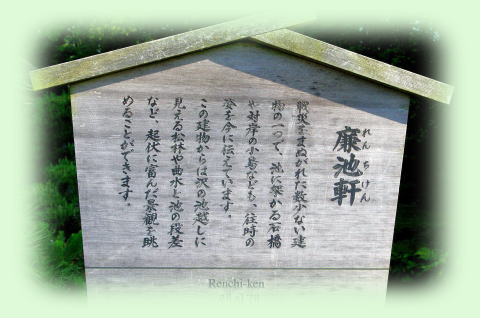 廉池軒
れんちけん
戦災をまぬがれた数少ない建
物の一つで、池に架かる石橋
や対岸の小島なども、往時の
姿を今に伝えています。
この建物からは沢の池越しに
見える松林や曲水と池の段差
など、起伏に富んだ景観を眺
めることができます。
Renchi-ken